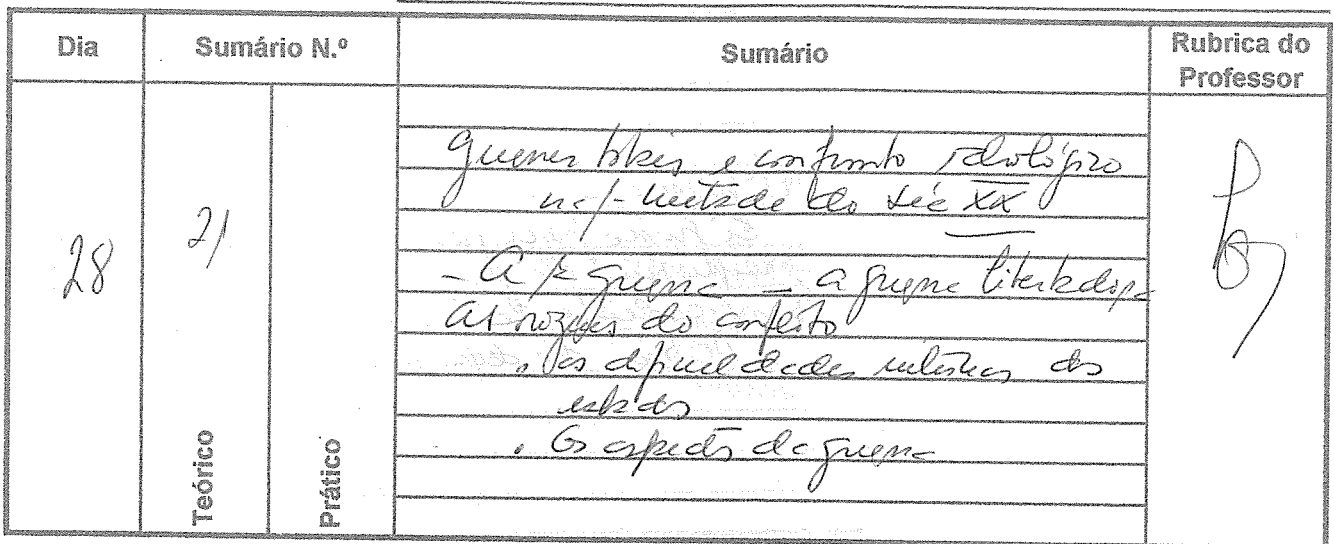 Dia
Sumário N.º
Sumário
Rubrica do
Professor
28
21
Teórico
Prático
guerras totais e confronto ideológico
na metade do séc XX
- A guerra - a guerra
As razões do conflito
. as dificuldades internas dos
estados
. Os aspectos da guerra